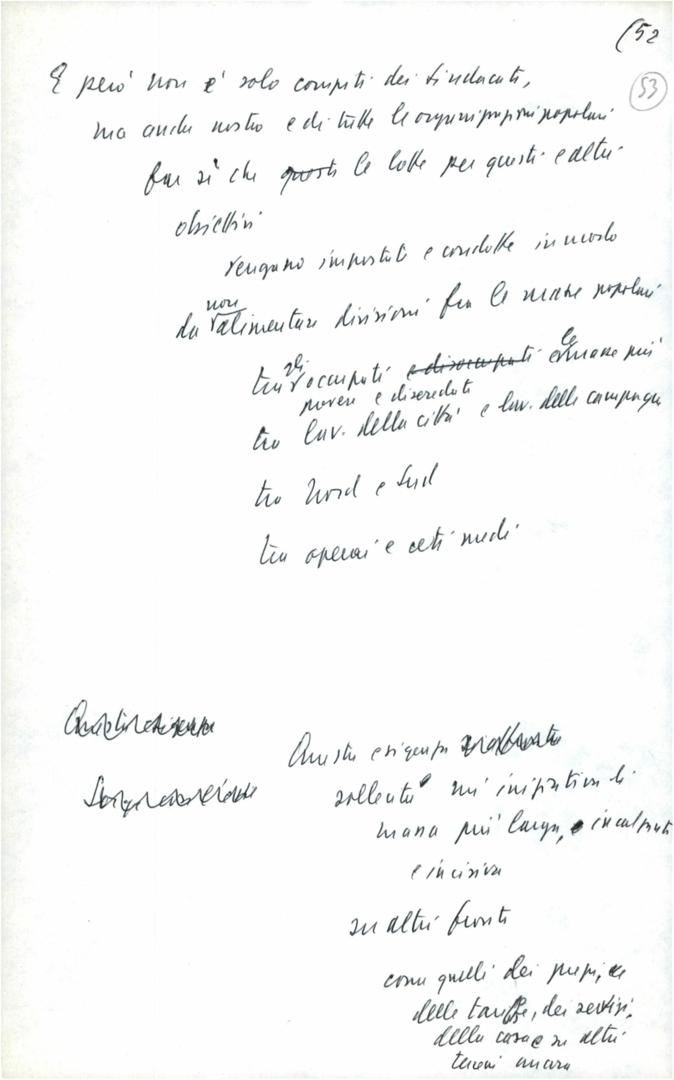 (52
53
E però non è solo compiti dei sindacati,
ma anche nostro e di tutte le organizzazioni popolari
far sì che questi le lotte per questi e altri
obiettivi
vengano impostate e condotte in modo
da non alimentare divisioni fra le masse popolari
tra gli occupati e disoccupati e le masse più
povere e diseredate
tra lav. della città e lav. delle campagne
tra Nord e Sud
tra operai e ceti medi
Questa esigenza
Questa esigenza
sollecita un'iniziativa di
massa più larga, e incalzante
e incisiva
su altri fronti
come quelli dei prezzi, e
delle tariffe, dei servizi,
della casa e su altri
terreni ancora